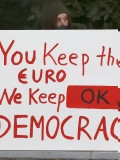 You Keep the
€URO
We Keep OK
DEMOCRAC